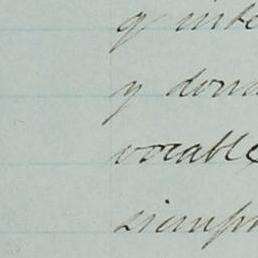 q' inte
y don
vocable
siemp